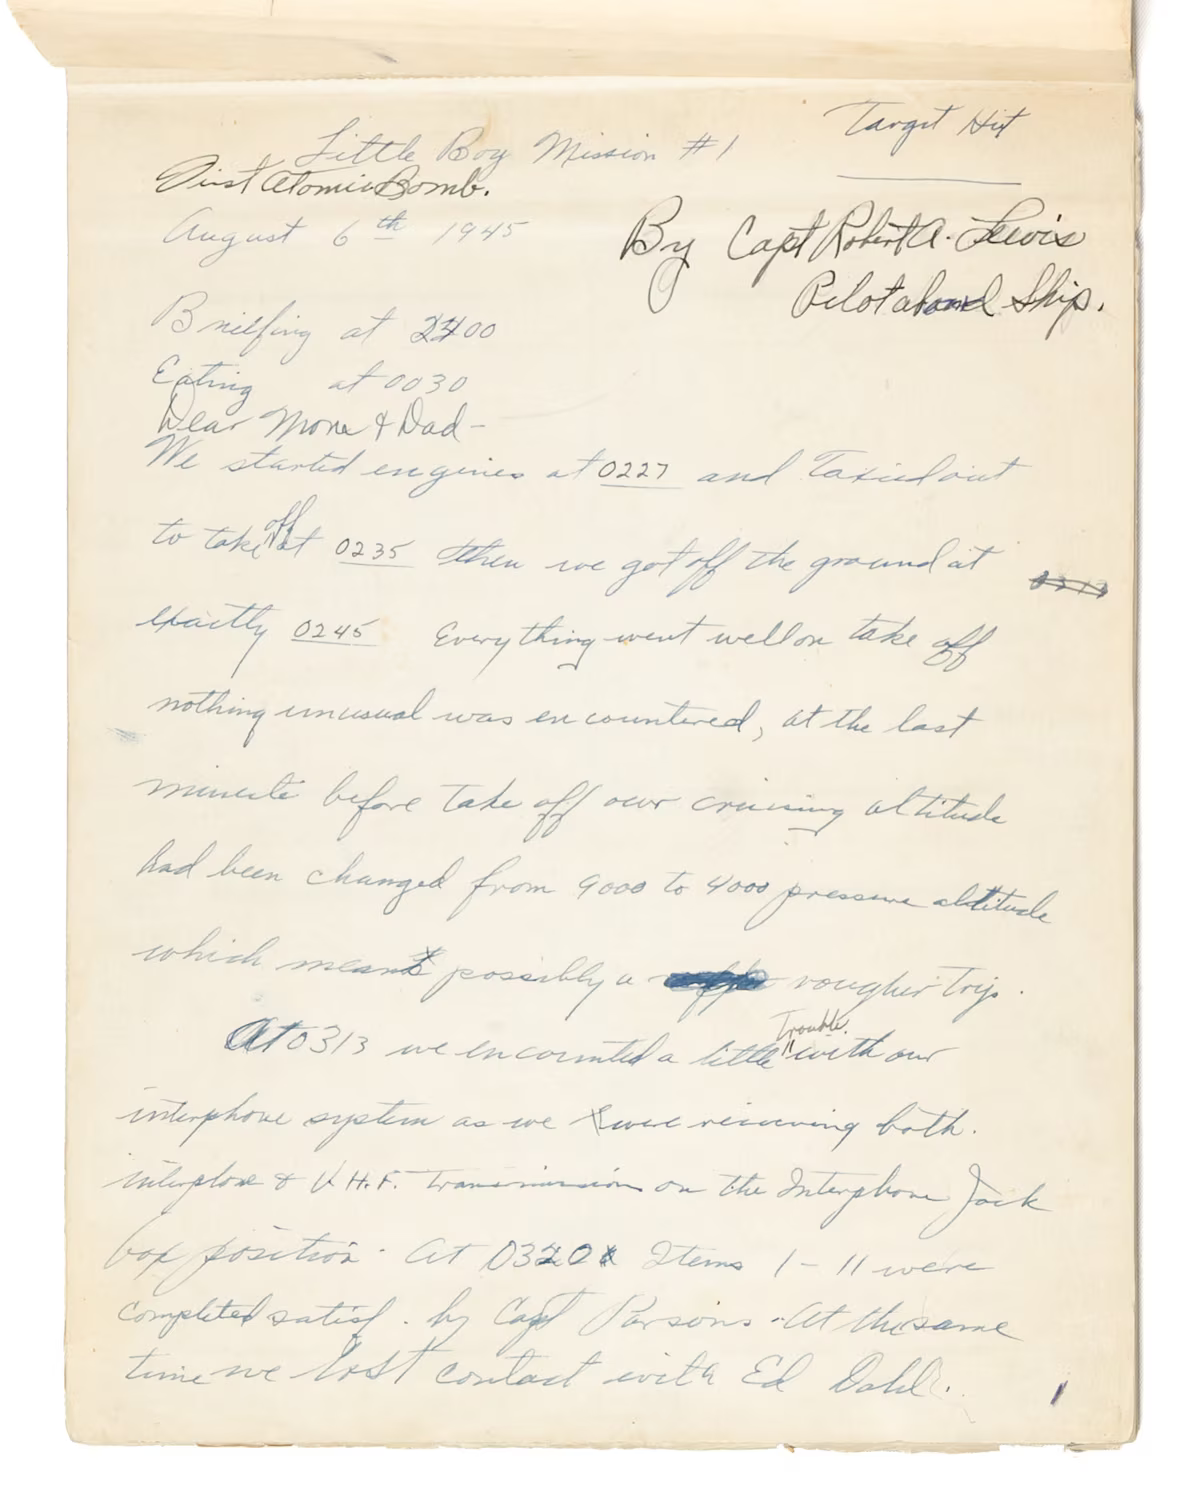 Target Hit
Little Boy Mission #1
First Atomic Bomb.
August 6th 1945
By Capt Robert A. Lewis
Pilot aboard Ship.
Breifing at 2400
Eating at 0030
Dear Mom & Dad -
We started engines at 0227 and Taxied out
to take off at 0235 then we got off the ground at
exactly 0245 Everything went well on take off
nothing unusual was encountered, at the last
minute before take off our cruising altitude
had been changed from 9000 to 4000 pressure altitude
which meant possibly a rougher trip.
At 0313 we encounted a little Trouble with our
interphone system as we were recieving both
interphone & V.H.F. transmissions on the Interphone Jack
box position. At 0320 Items 1 - 11 were
completed satisf. by Capt Parsons. At the same
time we lost contact with Ed Dahl.
1